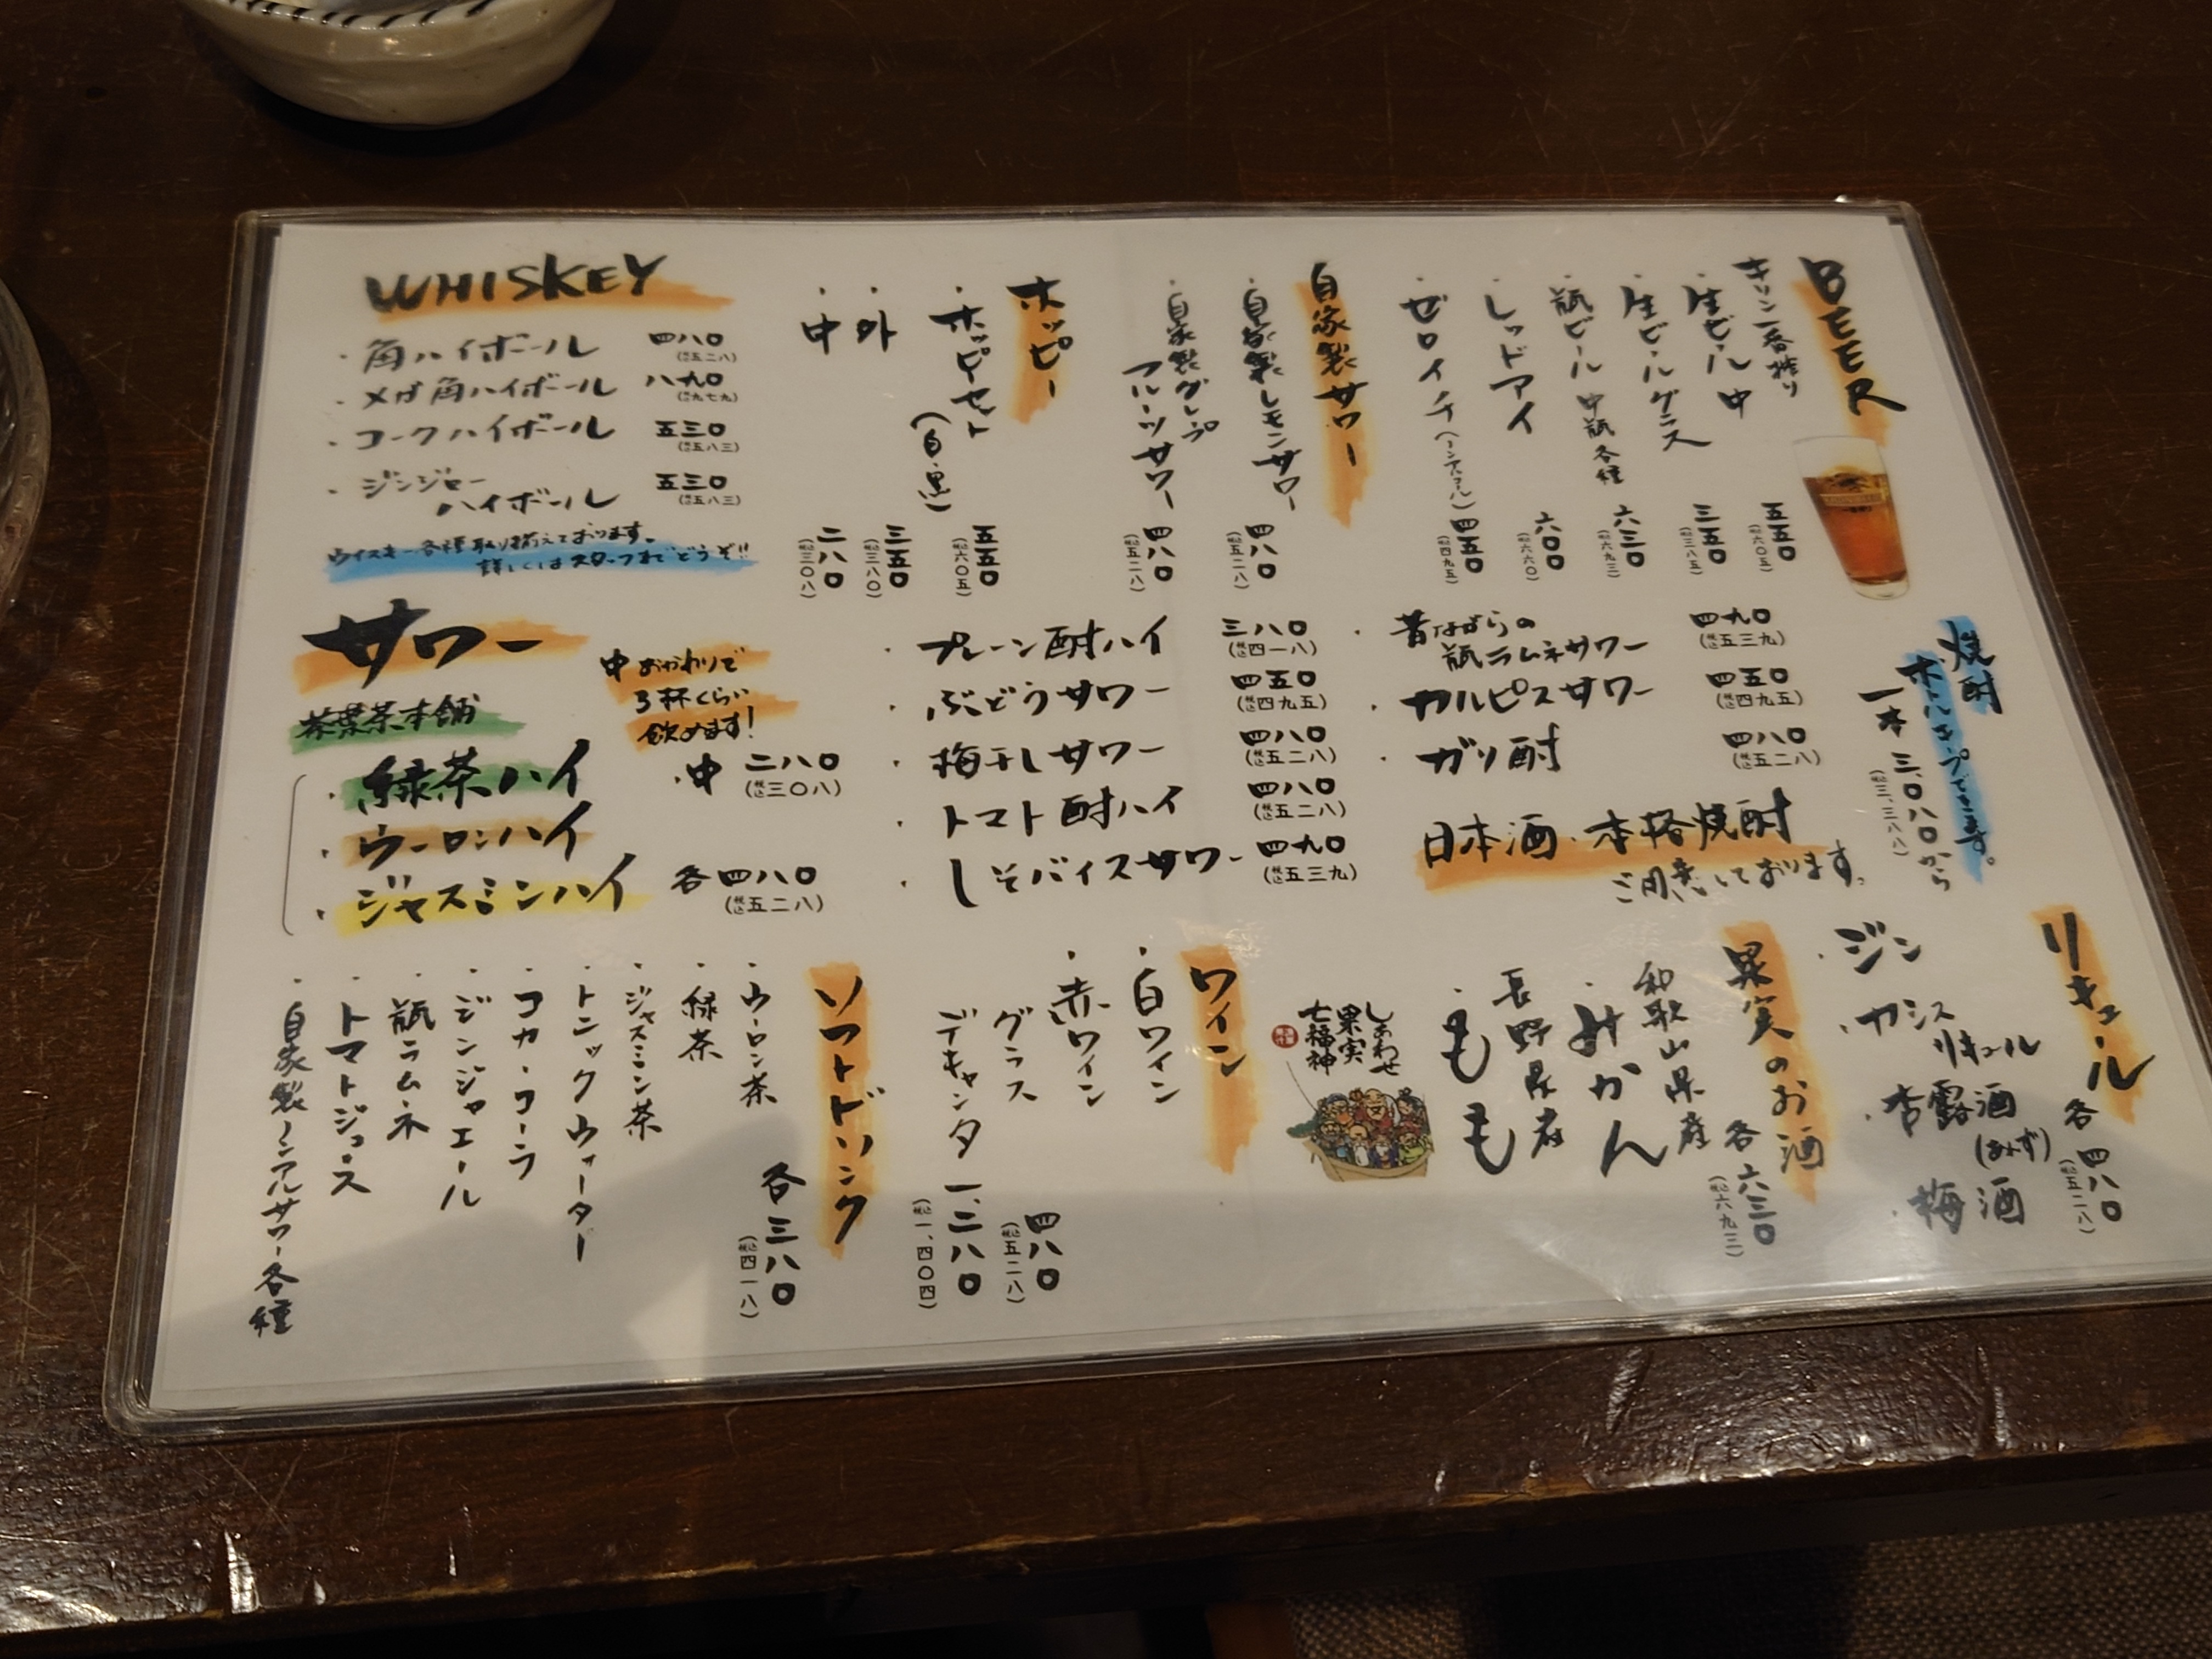 BEER
キリン一番搾り
・生ビール 中 五五〇
(税込六〇五)
・生ビール グラス 三五〇
(税込三八五)
・瓶ビール 中瓶 各種 六三〇
(税込六九三)
・レッドアイ 六〇〇
(税込六六〇)
・ゼロイチ(ノンアルコール) 四五〇
(税込四九五)
自家製サワー
・自家製レモンサワー 四八〇
(税込五二八)
・自家製グレープ
フルーツサワー 四八〇
(税込五二八)
ホッピー
・ホッピーセット
(白・黒) 五五〇
(税込六〇五)
・外 三五〇
(税込三八〇)
・中 二八〇
(税込三〇八)
WHISKEY
・角ハイボール 四八〇
(税込五二八)
・メガ角ハイボール 八九〇
(税込九七九)
・コークハイボール 五三〇
(税込五八三)
・ジンジャー
ハイボール 五三〇
(税込五八三)
ウイスキー各種取り揃えております。
詳しくはスタッフまでどうぞ!!
焼酎
ボトルキープできます。
一本 三、〇八〇から
(税込三、三八八)
サワー
茶葉茶本舗
・緑茶ハイ
・ウーロンハイ
・ジャスミンハイ
各四八〇
(税込五二八)
中おかわりで
3杯くらい
飲めます!
・中 二八〇
(税込三〇八)
・プレーン酎ハイ 三八〇
(税込四一八)
・ぶどうサワー 四五〇
(税込四九五)
・梅干しサワー 四八〇
(税込五二八)
・トマト酎ハイ 四八〇
(税込五二八)
・しそバイスサワー 四九〇
(税込五三九)
・昔ながらの
瓶ラムネサワー 四九〇
(税込五三九)
・カルピスサワー 四五〇
(税込四九五)
・ガリ酎 四八〇
(税込五二八)
日本酒・本格焼酎
ご用意しております。
リキュール
各四八〇
(税込五二八)
・ジン
・カシス
リキュール
・杏露酒
(あんず)
・梅酒
果実のお酒
各六三〇
(税込六九三)
和歌山県産
・みかん
長野県産
・もも
しあわせ
果実
七福神
ワイン
・白ワイン
・赤ワイン
グラス 四八〇
(税込五二八)
デキャンタ 一、二八〇
(税込一、四〇四)
ソフトドリンク
各三八〇
(税込四一八)
・ウーロン茶
・緑茶
・ジャスミン茶
・トニックウォーター
・コカ・コーラ
・ジンジャエール
・瓶ラムネ
・トマトジュース
・自家製ノンアルサワー各種